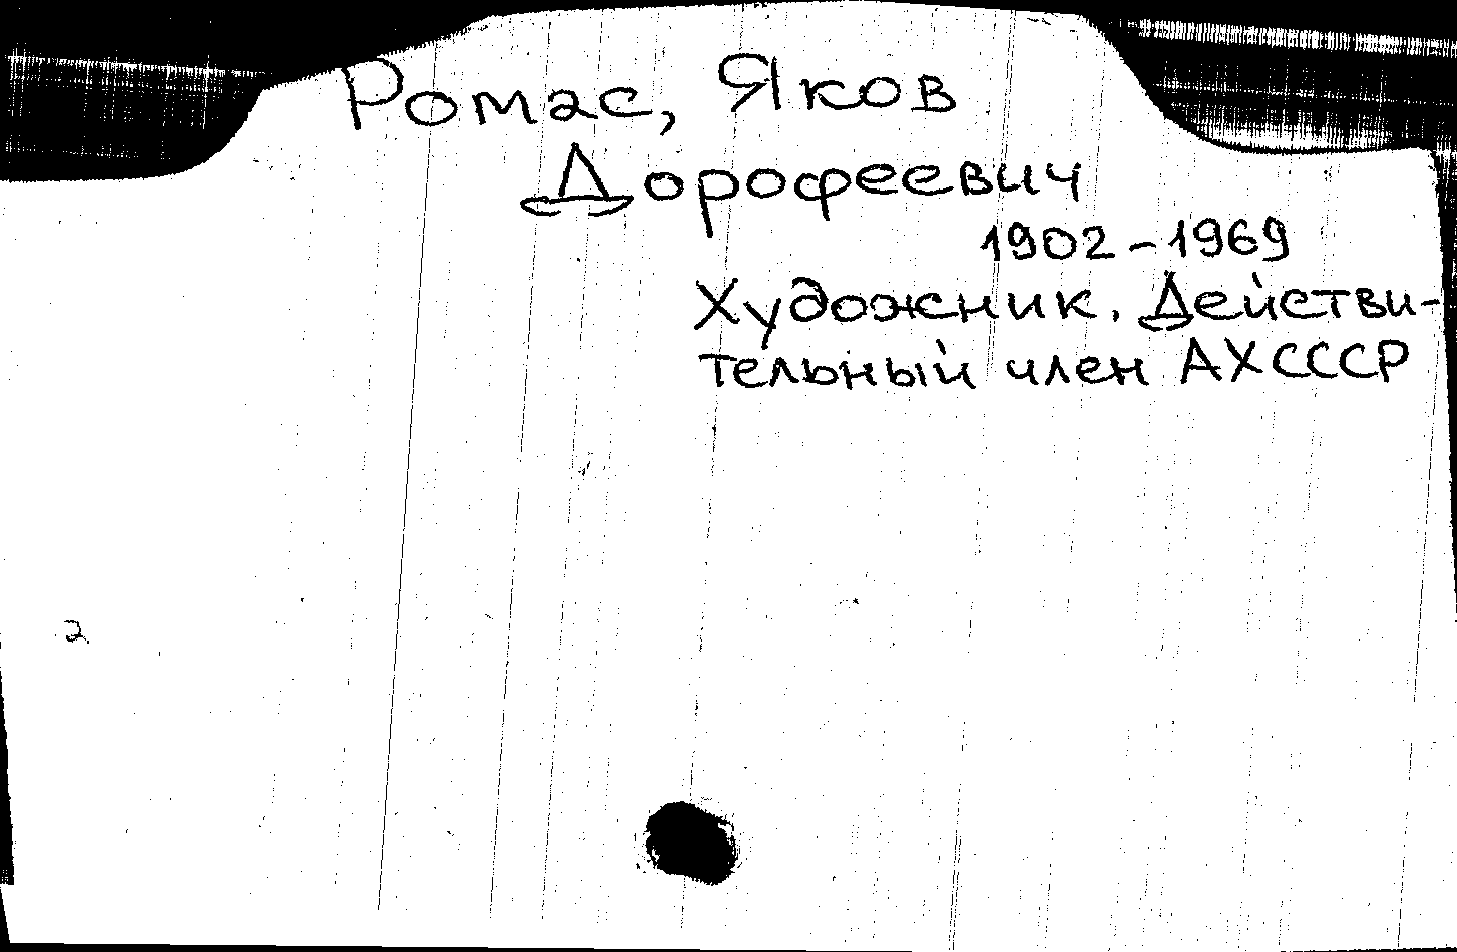 Ромас, Яков
Дорофеевич
1902-1969
Художник. Действи-
тельный член АХСССР
2